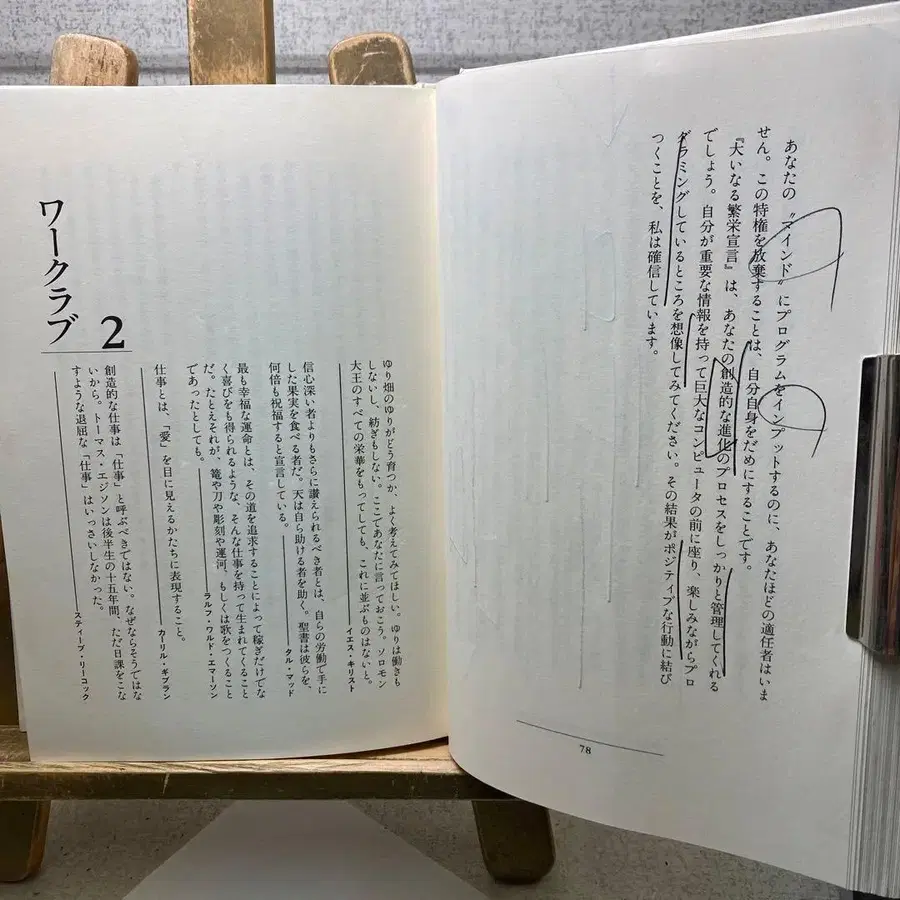 あなたの〝マインド〟にプログラムをインプットするのに、あなたほどの適任者はいま
せん。この特権を放棄することは、自分自身をだめにすることです。
『大いなる繁栄宣言』は、あなたの創造的な進化のプロセスをしっかりと管理してくれる
でしょう。自分が重要な情報を持って巨大なコンピュータの前に座り、楽しみながらプロ
グラミングしているところを想像してみてください。その結果がポジティブな行動に結び
つくことを、私は確信しています。
78
ゆり畑のゆりがどう育つか、よく考えてみてほしい。ゆりは働きも
しないし、紡ぎもしない。ここであなたに言っておこう。ソロモン
大王のすべての栄華をもってしても、これに並ぶものはないと。
イエス・キリスト
信心深い者よりもさらに讃えられるべき者とは、自らの労働で手に
した果実を食べる者だ。天は自ら助ける者を助く。聖書は彼らを、
何倍も祝福すると宣言している。
タル・マッド
最も幸福な運命とは、その道を追求することによって稼ぎだけでな
く喜びをも得られるような、そんな仕事を持って生まれてくること
だ。たとえそれが、籠や刀や彫刻や運河、もしくは歌をつくること
であったとしても。
ラルフ・ワルド・エマーソン
仕事とは、「愛」を目に見えるかたちに表現すること。
カーリル・ギブラン
創造的な仕事は「仕事」と呼ぶべきではない。なぜならそうではな
いから。トーマス・エジソンは後半生の十五年間、ただ日課をこな
すような退屈な「仕事」はいっさいしなかった。
スティーブ・リーコック
2
ワークラブ